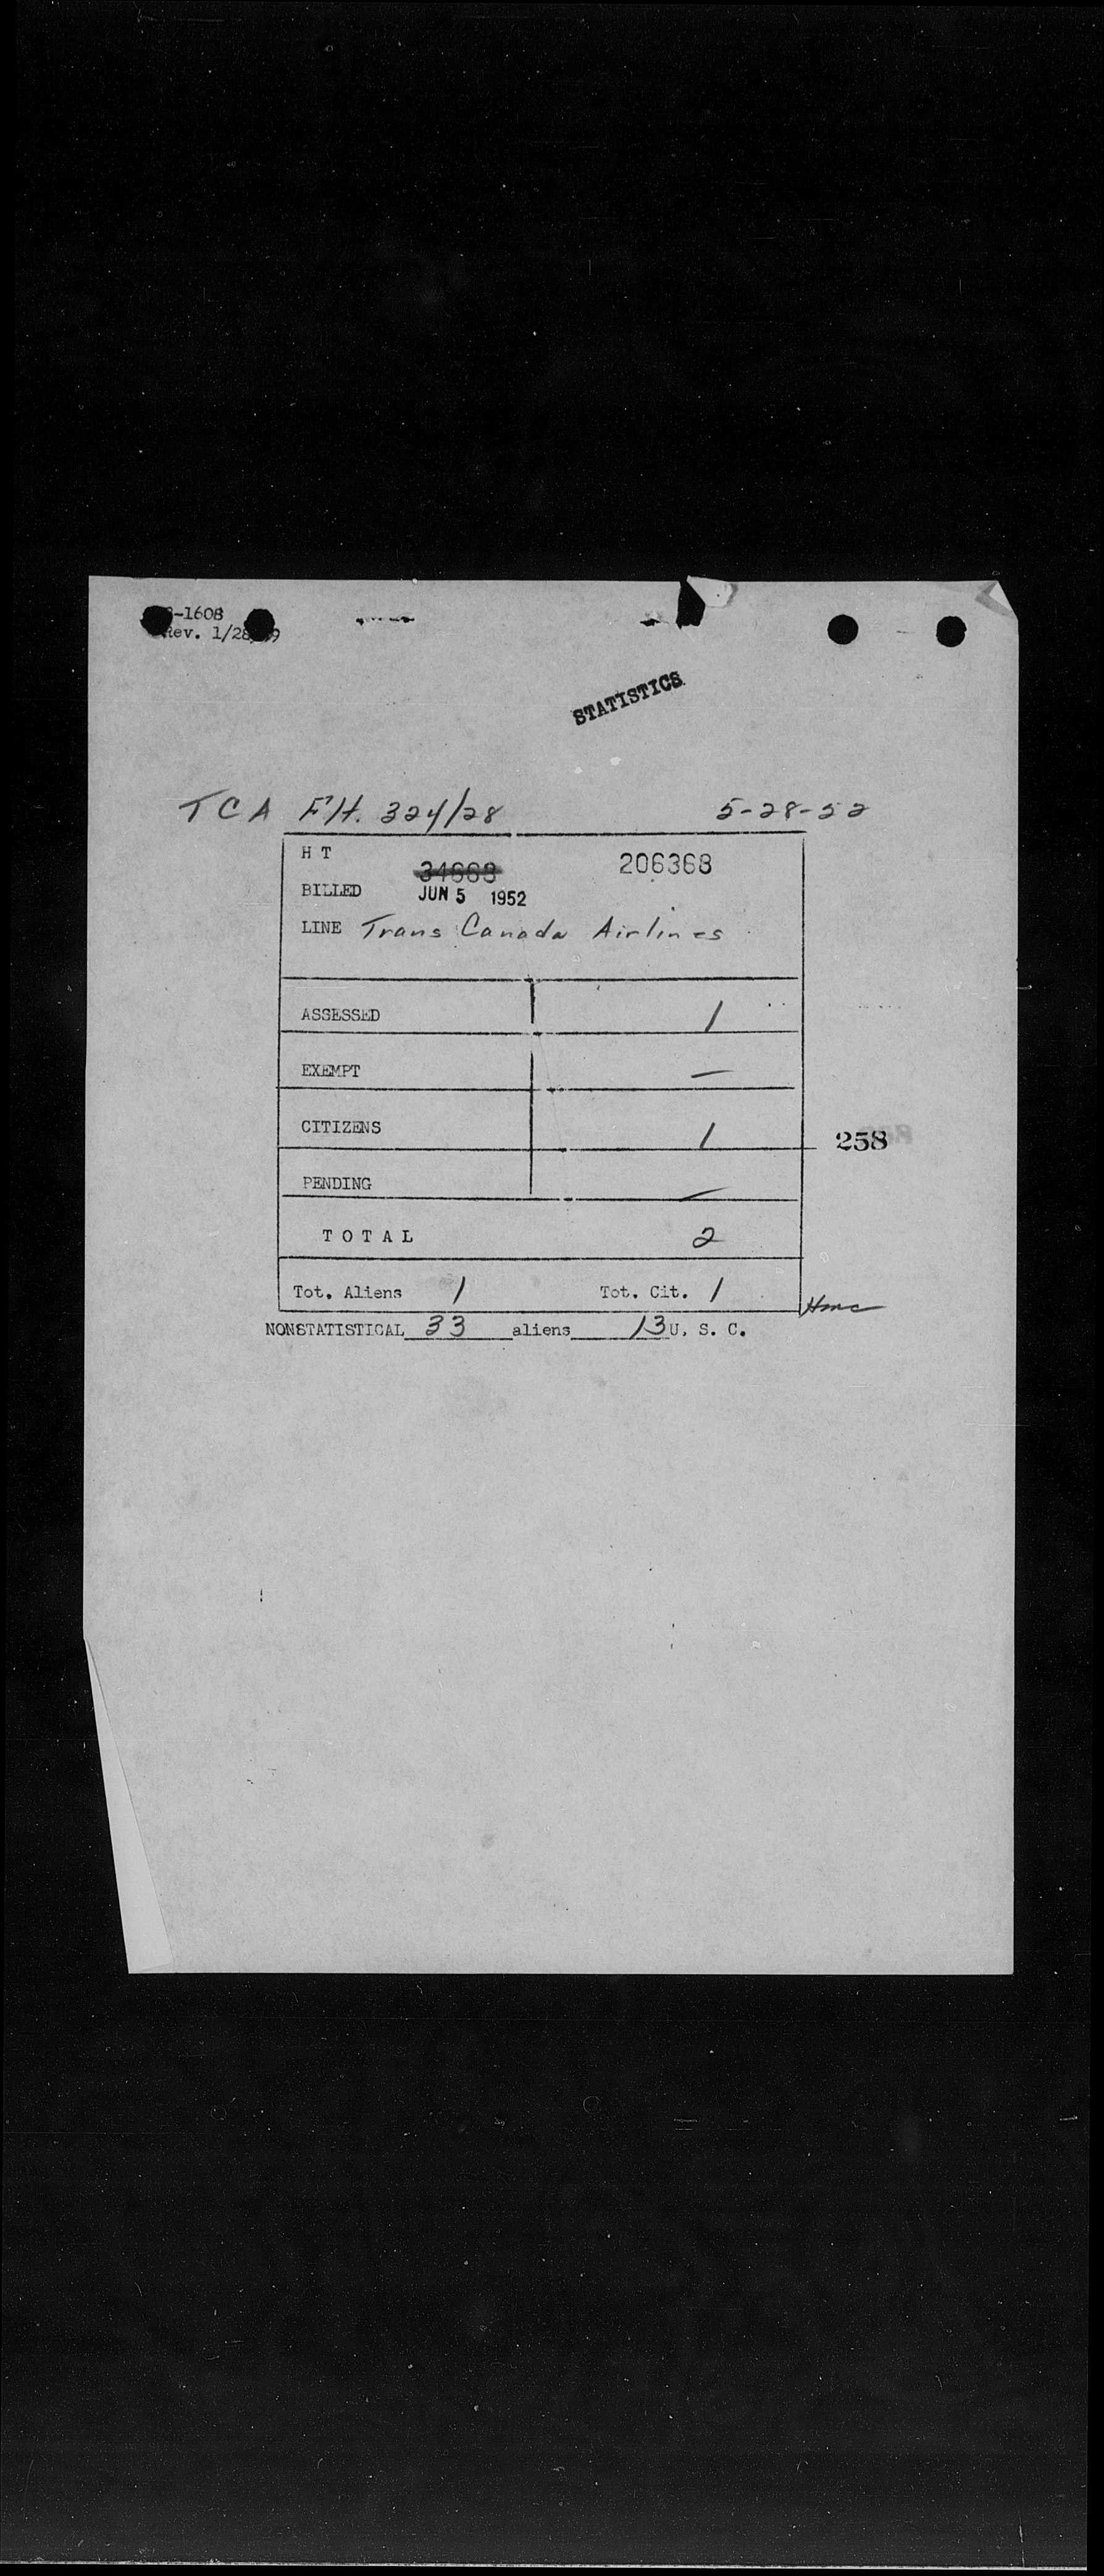 -1608
Rev. 1/28 9
STATISTICS
TCA Flt. 324/28 5-28-52
H T
34668 206368
BILLED JUN 5 1952
LINE Trans Canada Airlines
ASSESSED 1
EXEMPT —
CITIZENS 1
258
PENDING —
TOTAL 2
Tot. Aliens 1 Tot. Cit. 1
NONSTATISTICAL 33 aliens 13 U. S. C.